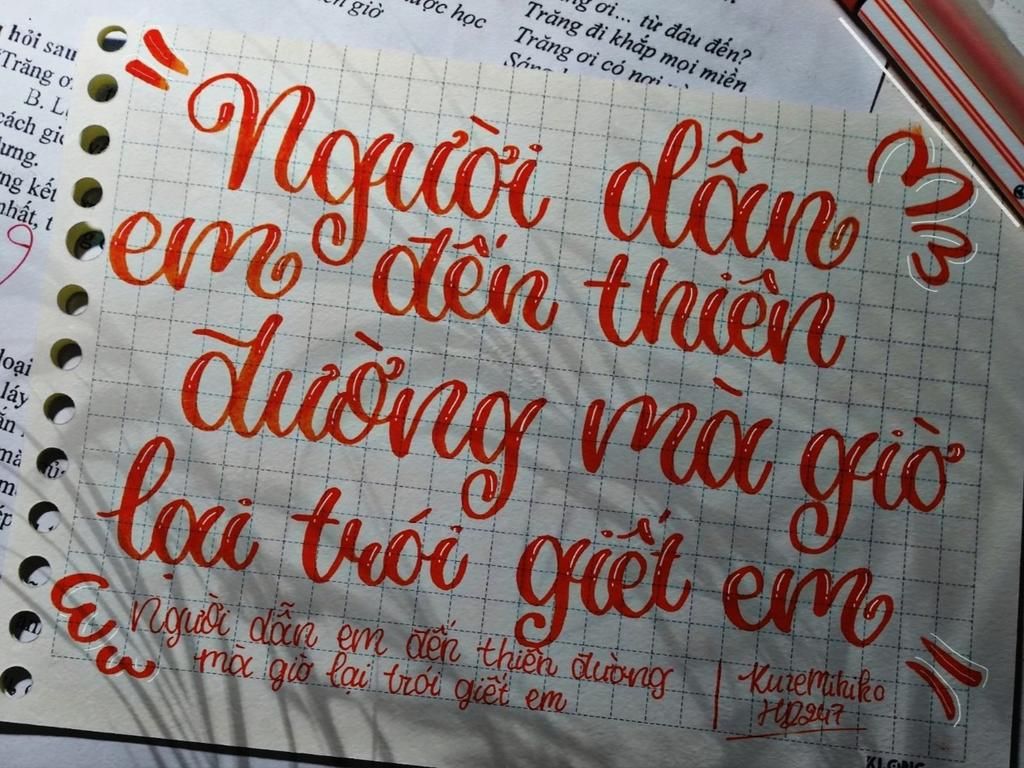 ược học
n giờ
g ơi... từ đâu đến?
Trăng đi khắp mọi miền
Trăng ơi có nơi
hỏi sau
"Trăng ơ
B. L
cách gi
ưng.
ng kết
nhất, t
loại
láy
ắn
mà
Người dẫn
em đến thiên
đường mà giờ
lại trói giết em
Người dẫn em đến thiên đường
mà giờ lại trói giết em
KureMihiko
HD247
KLONG